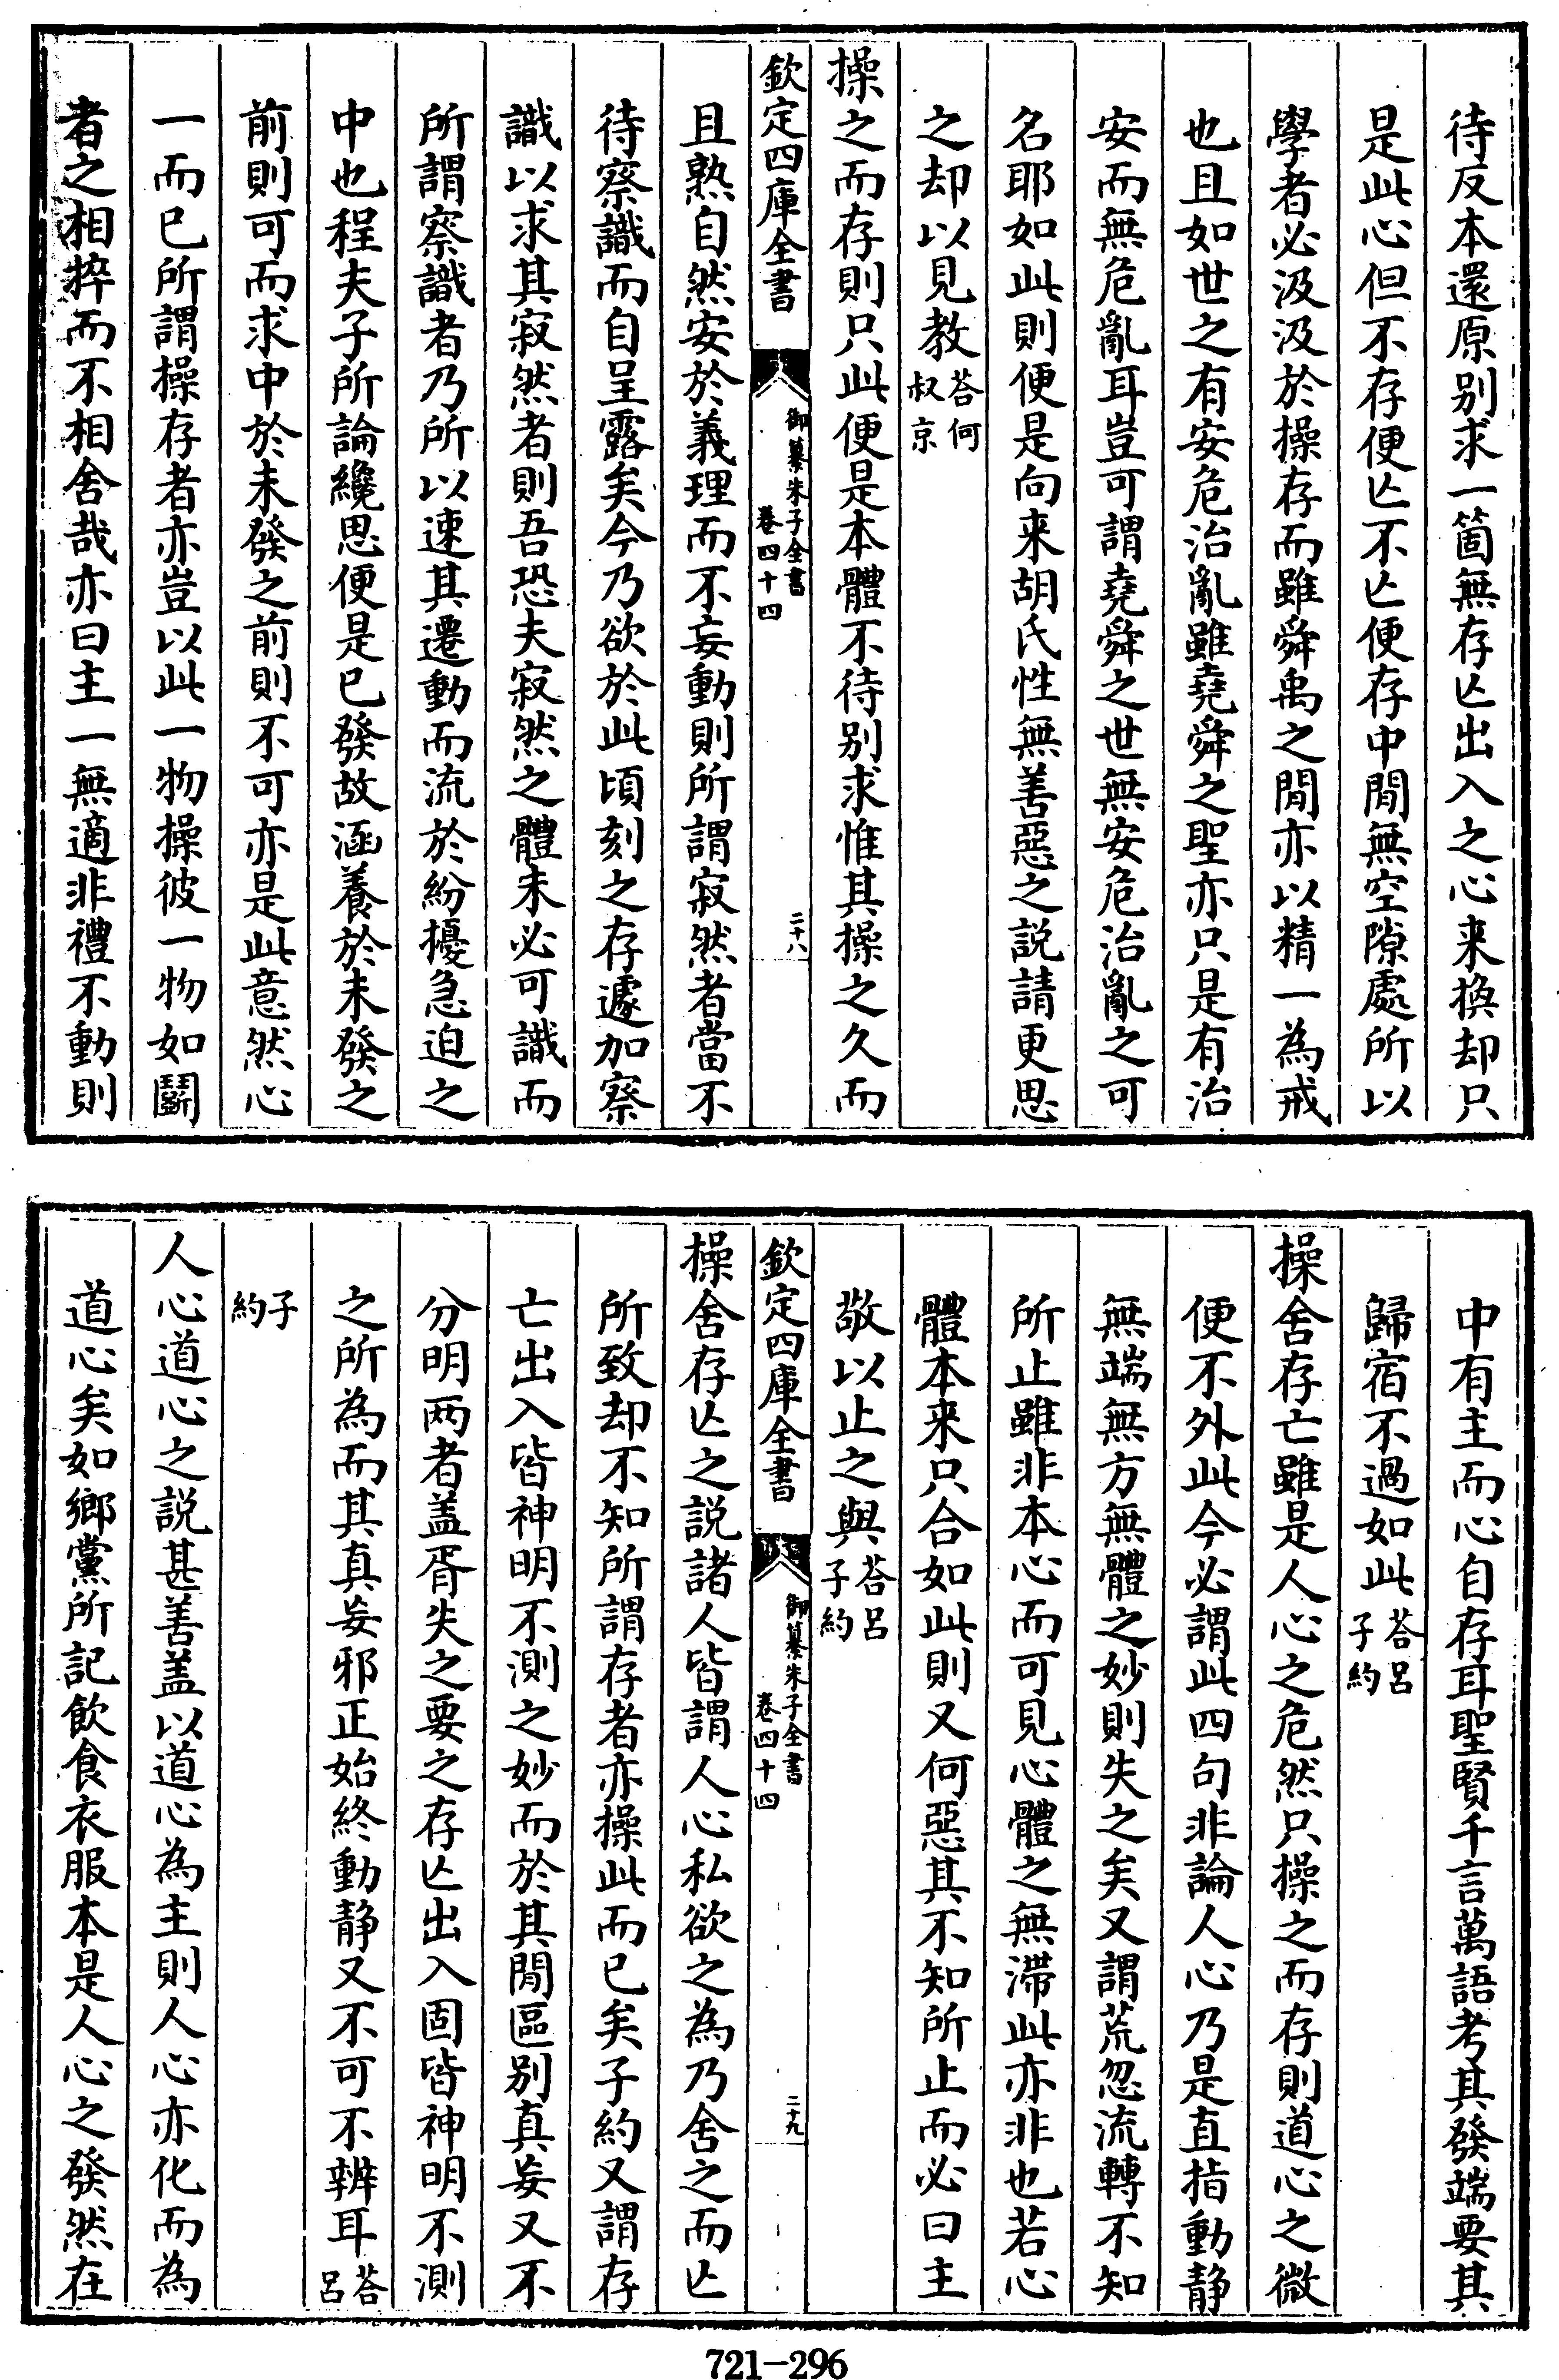 待反本還原别求一箇無存亾出入之心来換却只
是此心但不存便亾不亾便存中間無空隙處所以
學者必汲汲於操存而雖舜禹之間亦以精一為戒
也且如世之有安危治亂雖堯舜之聖亦只是有治
安而無危亂耳豈可謂堯舜之世無安危治亂之可
名耶如此則便是向来胡氏性無善惡之説請更思
之却以見教答何叔京
操之而存則只此便是本體不待别求惟其操之久而
欽定四庫全書 御纂朱子全書 卷四十四 二十八
且熟自然安於義理而不妄動則所謂寂然者當不
待察識而自呈露矣今乃欲於此頃刻之存遽加察
識以求其寂然者則吾恐夫寂然之體未必可識而
所謂察識者乃所以速其遷動而流於紛擾急迫之
中也程夫子所論纔思便是已發故涵養於未發之
前則可而求中於未發之前則不可亦是此意然心
一而已所謂操存者亦豈以此一物操彼一物如鬭
者之相捽而不相舍哉亦曰主一無適非禮不動則
中有主而心自存耳聖賢千言萬語考其發端要其
歸宿不過如此答呂子約
操舍存亡雖是人心之危然只操之而存則道心之微
便不外此今必謂此四句非論人心乃是直指動静
無端無方無體之妙則失之矣又謂荒忽流轉不知
所止雖非本心而可見心體之無滯此亦非也若心
體本来只合如此則又何惡其不知所止而必曰主
敬以止之與答呂子約
欽定四庫全書 御纂朱子全書 卷四十四 二十九
操舍存亾之説諸人皆謂人心私欲之為乃舍之而亾
所致却不知所謂存者亦操此而已矣子約又謂存
亡出入皆神明不測之妙而於其間區别真妄又不
分明兩者盖胥失之要之存亾出入固皆神明不測
之所為而其真妄邪正始終動静又不可不辨耳答呂
子約
人心道心之説甚善盖以道心為主則人心亦化而為
道心矣如鄉黨所記飲食衣服本是人心之發然在
721-296